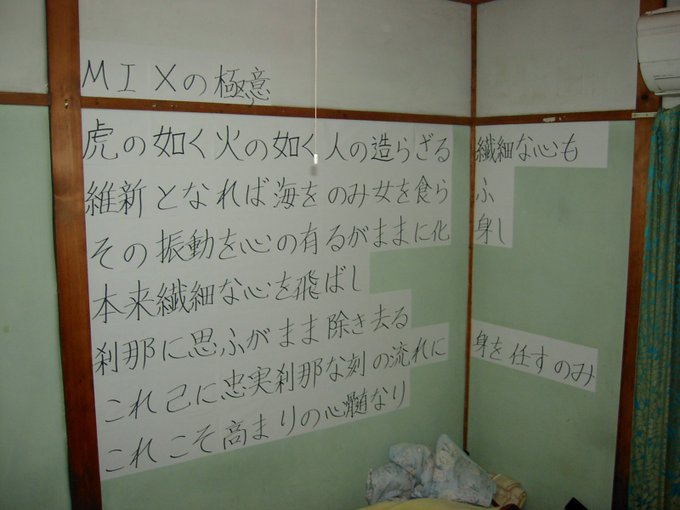 MIXの極意
虎の如く火の如く人の造らざる繊細な心も
維新となれば海をのみ女を食らふ
その振動を心の有るがままに化身し
本来繊細な心を飛ばし
刹那に思ふがまま除き去る
これ己に忠実刹那な刻の流れに身を任すのみ
これこそ高まりの心髄なり